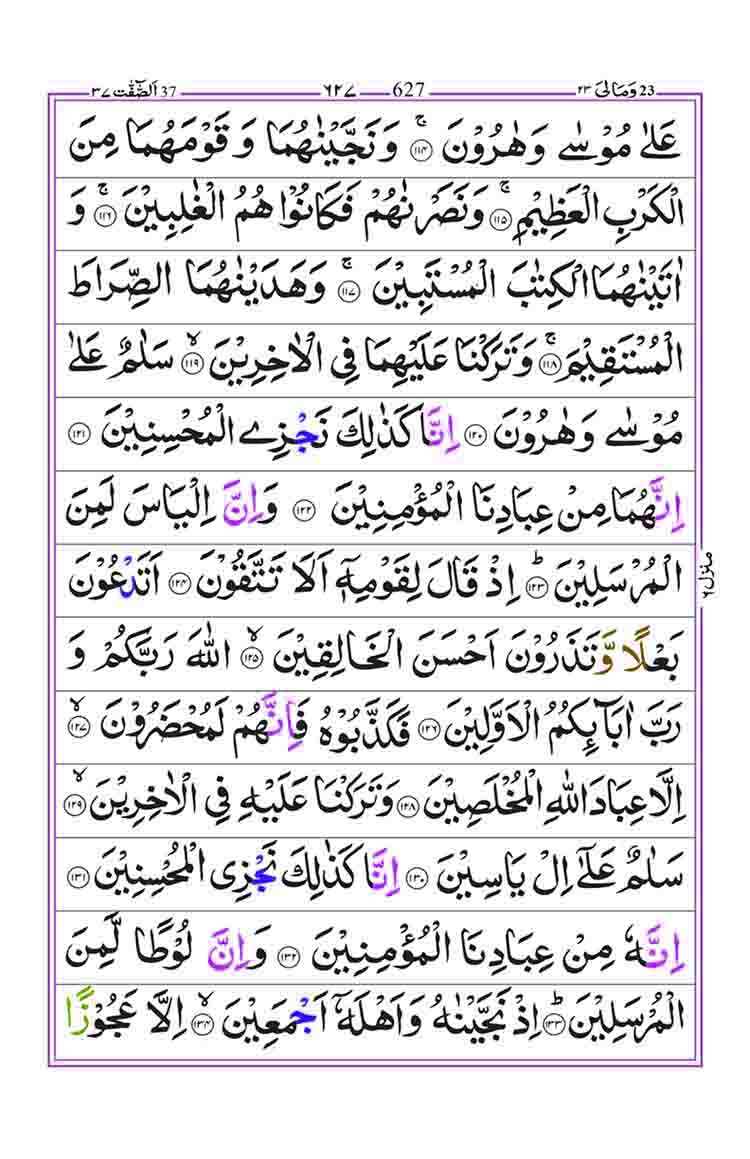 وَمَا لِىَ 23 ٢٣ 627 ٦٢٧ اَلصّٰٓفّٰت 37 ٣٧
عَلٰى مُوْسٰى وَهٰرُوْنَ ۚ‏﴿۱۱۴﴾ وَنَجَّيْنٰهُمَا وَ قَوْمَهُمَا مِنَ
الْكَرْبِ الْعَظِيْمِ ۚ‏﴿۱۱۵﴾ وَنَصَرْنٰهُمْ فَكَانُوْا هُمُ الْغٰلِبِيْنَ ۚ‏﴿۱۱۶﴾ وَ
اٰتَيْنٰهُمَا الْكِتٰبَ الْمُسْتَبِيْنَ ۚ‏﴿۱۱۷﴾ وَهَدَيْنٰهُمَا الصِّرَاطَ
الْمُسْتَقِيْمَ ۚ‏﴿۱۱۸﴾ وَتَرَكْنَا عَلَيْهِمَا فِى الْاٰخِرِيْنَ ۙ‏﴿۱۱۹﴾ سَلٰمٌ عَلٰى
مُوْسٰى وَهٰرُوْنَ ﴿۱۲۰﴾ اِنَّا كَذٰلِكَ نَجْزِى الْمُحْسِنِيْنَ ﴿۱۲۱﴾
اِنَّهُمَا مِنْ عِبَادِنَا الْمُؤْمِنِيْنَ ﴿۱۲۲﴾ وَاِنَّ اِلْيَاسَ لَمِنَ
الْمُرْسَلِيْنَ ؕ‏﴿۱۲۳﴾ اِذْ قَالَ لِقَوْمِهٖۤ اَلَا تَتَّقُوْنَ ﴿۱۲۴﴾ اَتَدْعُوْنَ
بَعْلًا وَّتَذَرُوْنَ اَحْسَنَ الْخَالِقِيْنَ ۙ‏﴿۱۲۵﴾ اللّٰهَ رَبَّكُمْ وَ
رَبَّ اٰبَآئِكُمُ الْاَوَّلِيْنَ ﴿۱۲۶﴾ فَكَذَّبُوْهُ فَاِنَّهُمْ لَمُحْضَرُوْنَ ۙ‏﴿۱۲۷﴾
اِلَّا عِبَادَ اللّٰهِ الْمُخْلَصِيْنَ ﴿۱۲۸﴾ وَتَرَكْنَا عَلَيْهِ فِى الْاٰخِرِيْنَ ۙ‏﴿۱۲۹﴾
سَلٰمٌ عَلٰٓى اِلْ يَاسِيْنَ ﴿۱۳۰﴾ اِنَّا كَذٰلِكَ نَجْزِى الْمُحْسِنِيْنَ ﴿۱۳۱﴾
اِنَّهٗ مِنْ عِبَادِنَا الْمُؤْمِنِيْنَ ﴿۱۳۲﴾ وَاِنَّ لُوْطًا لَّمِنَ
الْمُرْسَلِيْنَ ؕ‏﴿۱۳۳﴾ اِذْ نَجَّيْنٰهُ وَاَهْلَهٗۤ اَجْمَعِيْنَ ۙ‏﴿۱۳۴﴾ اِلَّا عَجُوْزًا
منزل ٦